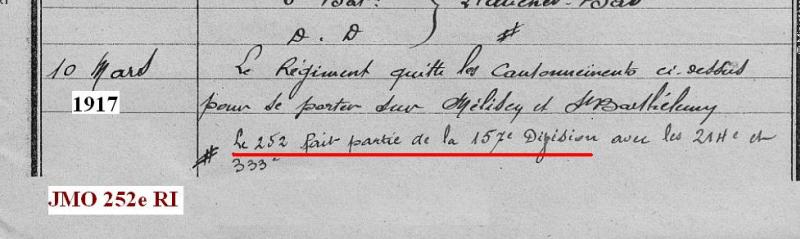 D. D } #
10 Mars Le Régiment quitte les Cantonnements ci-dessus
1917 pour se porter sur Mélisey et St Barthélemy
# Le 252 fait partie de la 157e Division avec les 214e et
333e
JMO 252e RI